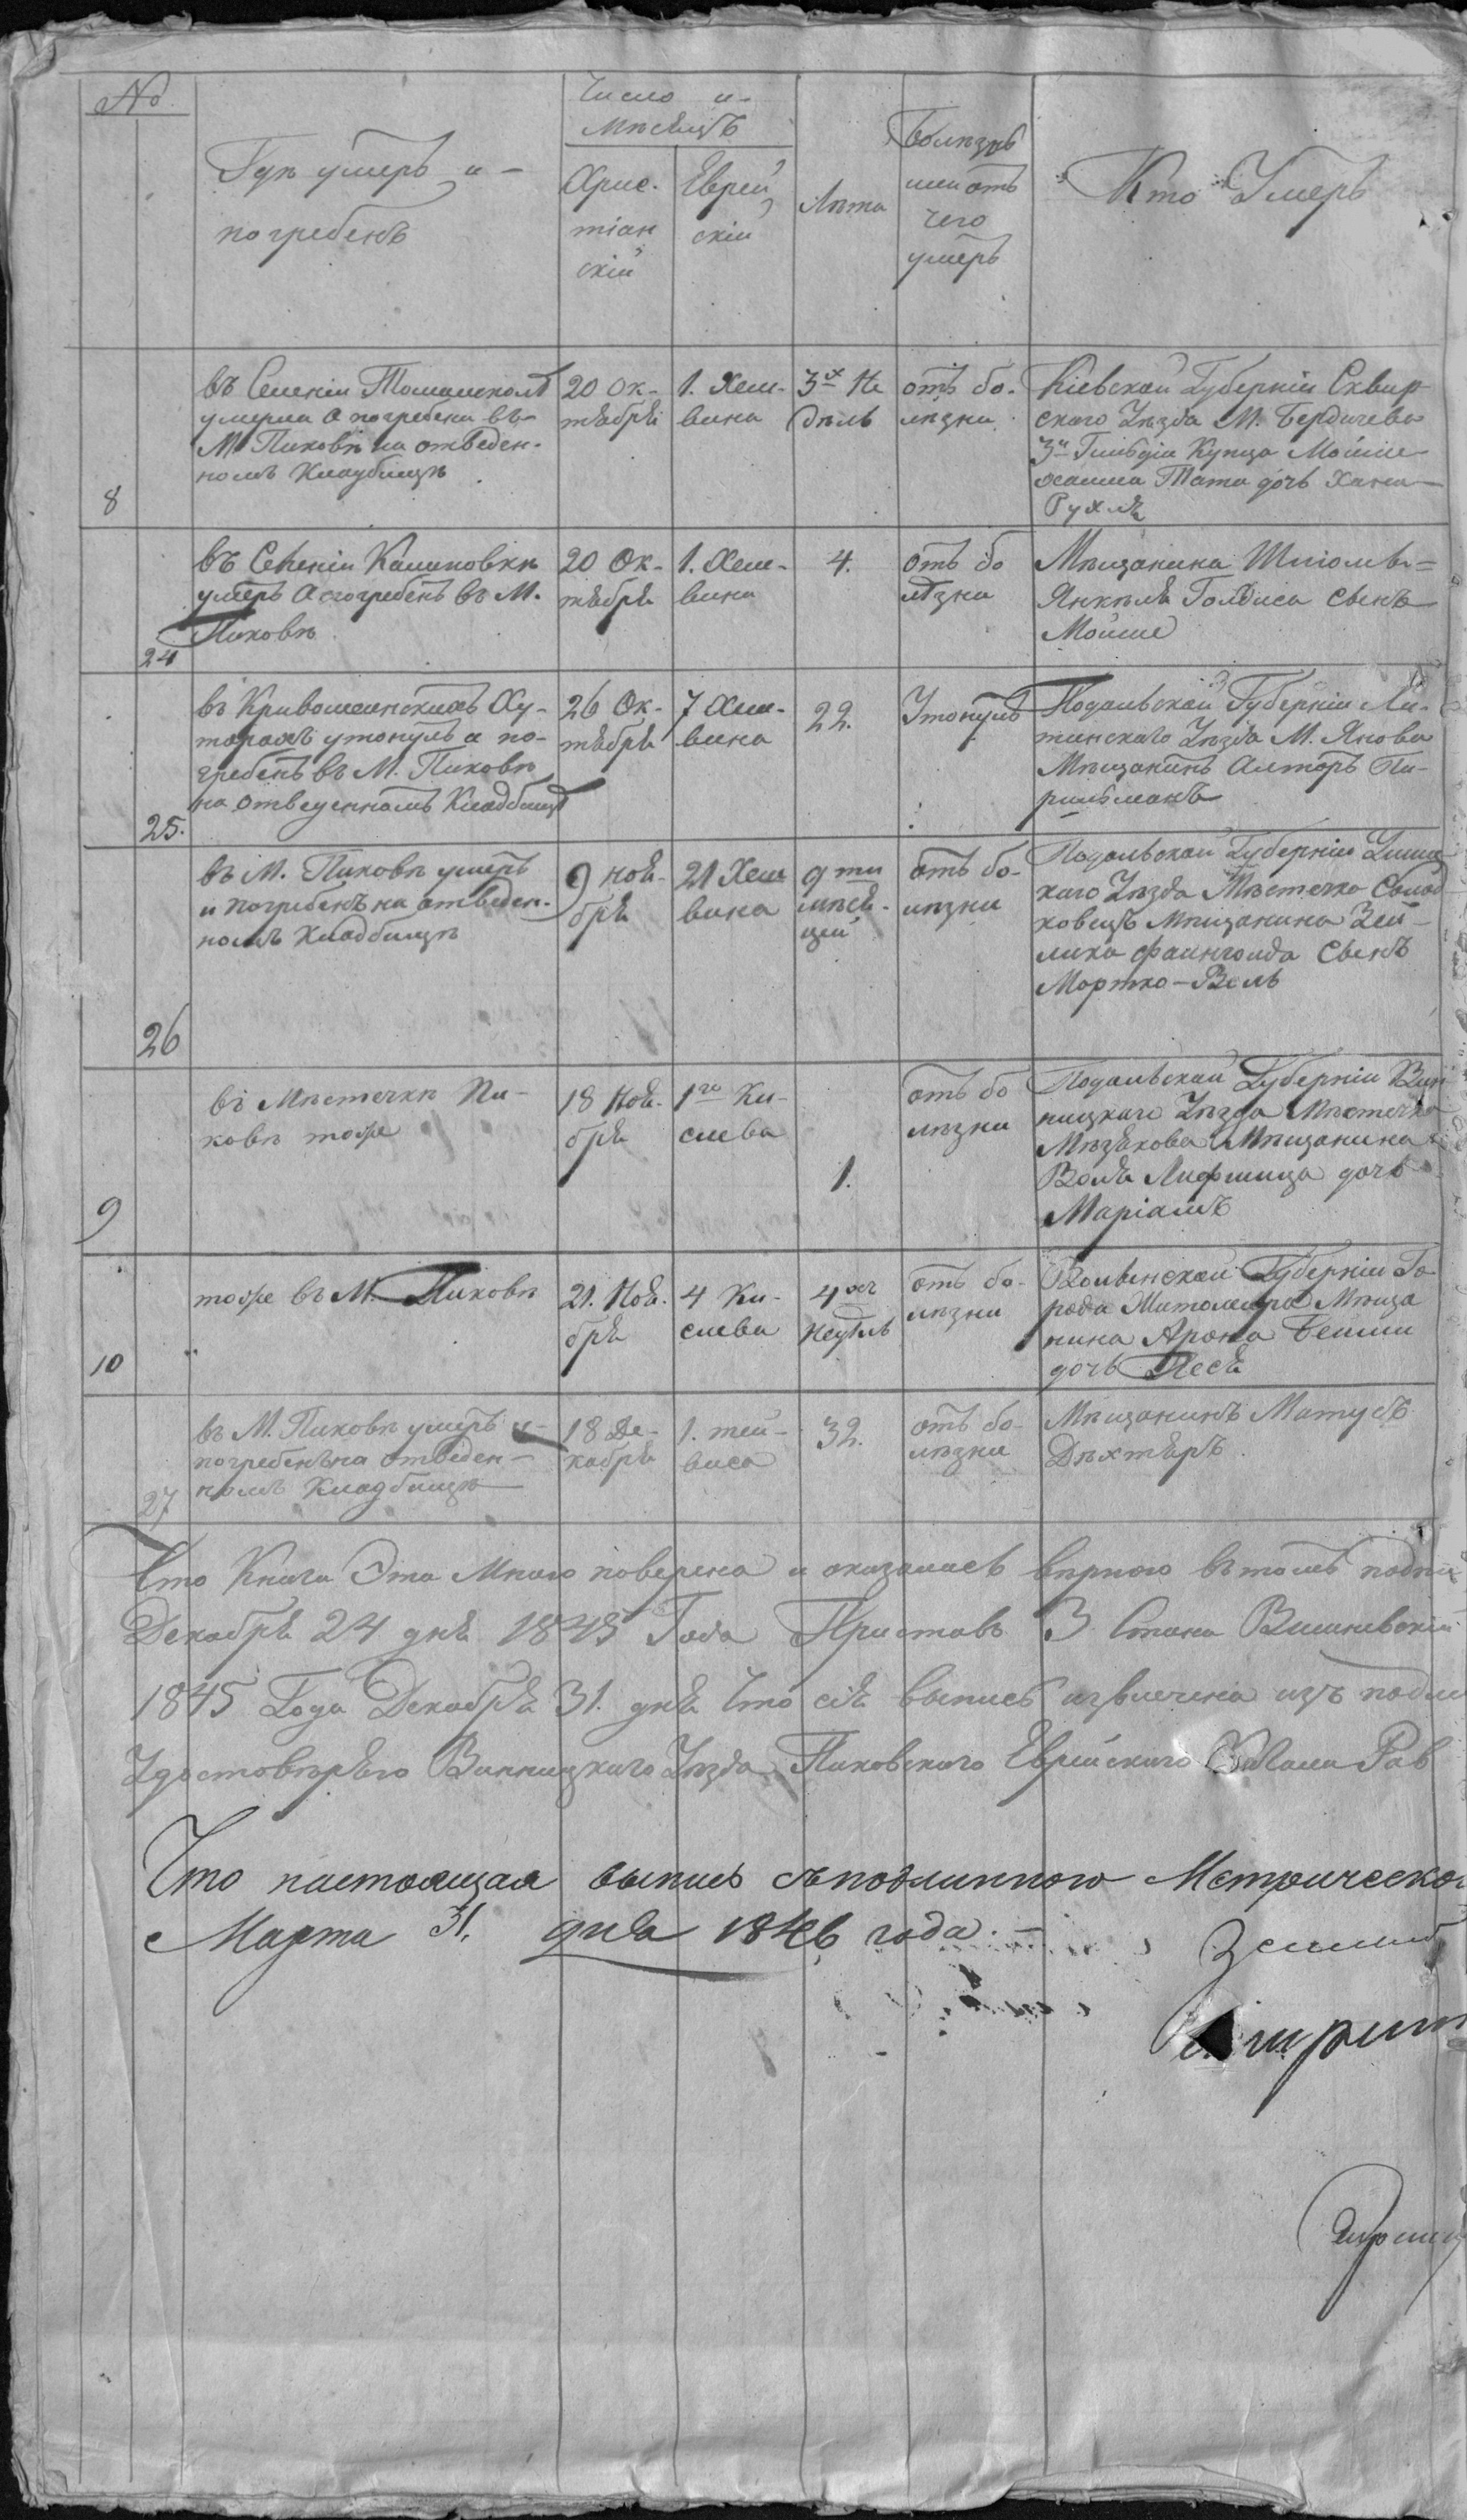 №
Число и
мѣсяцъ
Гдѣ умеръ и
погребенъ
Хрис-
тіан
скій
Еврей
скій
Лѣта
Болѣзнь
или отъ
чего
умеръ
Кто Умеръ
8
въ Селеніи
умерла а погребена въ
М Пиковѣ на отведен-
номъ Кладбищѣ
20 Ок-
тября
1. Хеш-
вина
3х Не
дѣль
отъ бо-
лѣзни
Кіевской Губерніи Сквир
скаго Уѣзда М. Бердичева
3й Гильдіи Купца Мойше
дочь Хана
Рухля
24
въ Селеніи Калиновки
умеръ а погребенъ въ М.
Пиковѣ
20 Ок-
тября
1. Хеш-
вина
4.
отъ бо
лѣзни
Мѣщанина
Янкеля Голдиса сынъ
Мойше
25.
въ Кривошеинскихъ Ху-
торахъ утонулъ а по-
гребенъ въ М. Пиковѣ
на отведенномъ Кладбищѣ
26 Ок-
тября
7 Хеш-
вина
22.
Утонулъ
Подольской Губерніи Ли-
тинскаго Уѣзда М. Янова
Мѣщанинъ
26
въ М. Пиковѣ умеръ
и погребенъ на отведен-
номъ Кладбищѣ
9 ноя-
бря
21 Хеш
вина
9 ти
мѣся-
цей
отъ бо-
лѣзни
Подольской Губерніи Ушиц
каго Уѣзда Мѣстечка
мѣщанина Зей-
лика Файнголда сынъ
Мортко-Вель
9
въ Мѣстечкѣ Пи-
ковѣ тоже
18 Ноя-
бря
1го Ки-
слева
1.
отъ бо
лѣзни
Подольской Губерніи Вин
ницкаго Уѣзда Мѣстечка
Мѣзякова Мѣщанина
Воля Лифшица дочь
Маріамъ
10
тоже въ М. Пиковѣ
21. Ноя-
бря
4 Ки-
слева
4 ох
недѣль
отъ бо-
лѣзни
Волынской Губерніи Го
рода Житомира Мѣща
нина Арона
дочь Песя
27
въ М. Пиковѣ умеръ и
погребенъ на отведен-
номъ Кладбищѣ
18 Де-
кабря
1. тей-
виса
32.
отъ бо-
лѣзни
Мѣщанинъ Матусъ
Дѣхтяръ
Что Книга Эта Мною поверена и оказалась вѣрною въ томъ подпи
Декабря 24 дня 1845 Года Приставъ 3 Стана Вишневскій
1845 Года Декабря 31. дня Что сія выпись извлечена изъ подли
Удостовѣряю Винницкаго Уѣзда Пиковскаго Еврейскаго Кагала Рав
Что настоящая выпись съ подлинною Метрическо
Марта 31. дня 1846 года.